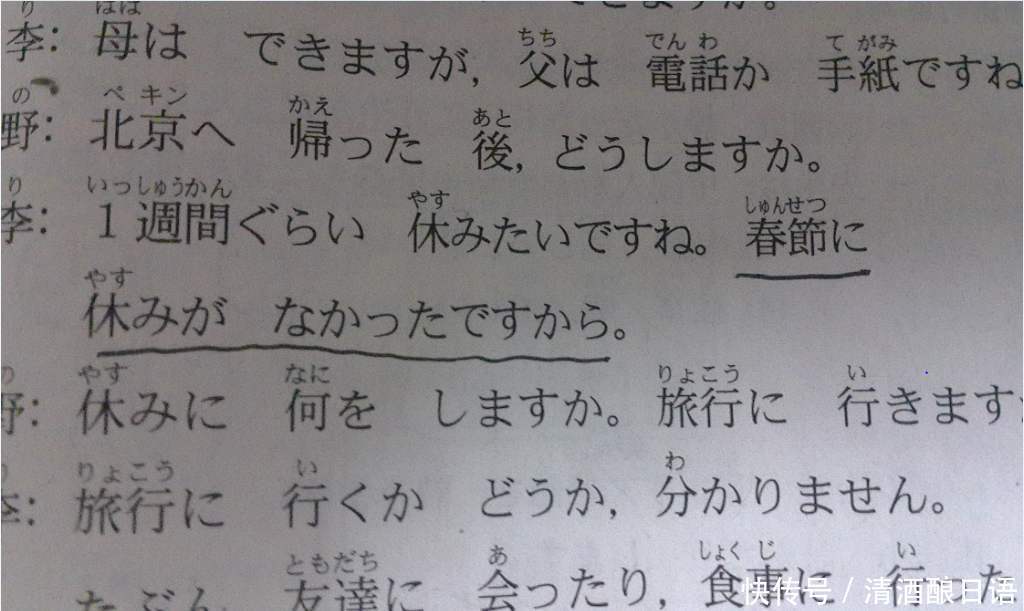 李：母は できますが，父は 電話か 手紙ですね
野：北京へ 帰った 後，どうしますか。
李：１週間ぐらい 休みたいですね。春節に
休みが なかったですから。
野：休みに 何を しますか。旅行に 行きます
李：旅行に 行くか どうか，分かりません。
たぶん 友達に 会ったり，食事に 行った
快传号 / 清酒酿日语